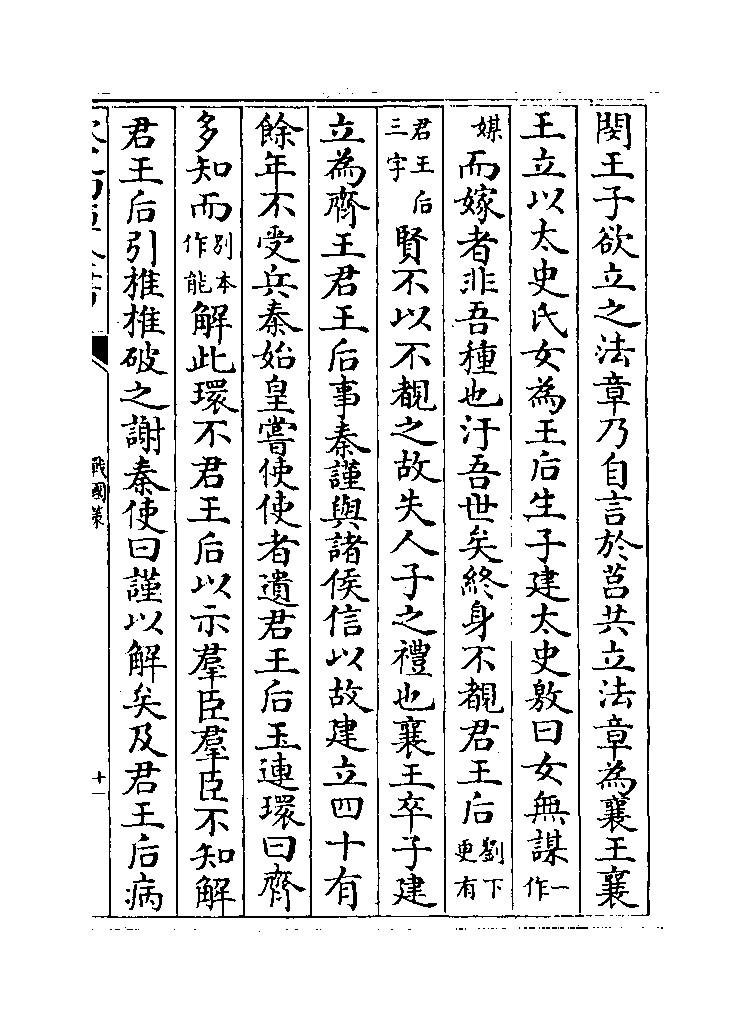 閔王子欲立之法章乃自言於莒共立法章為襄王襄
王立以太史氏女為王后生子建太史敫曰女無謀一作
媒而嫁者非吾種也汙吾世矣終身不覩君王后劉下更有
君王后三字賢不以不覩之故失人子之禮也襄王卒子建
立為齊王君王后事秦謹與諸侯信以故建立四十有
餘年不受兵秦始皇嘗使使者遺君王后玉連環曰齊
多知而别本作能解此環不君王后以示羣臣羣臣不知解
君王后引椎椎破之謝秦使曰謹以解矣及君王后病
戰國策
十一